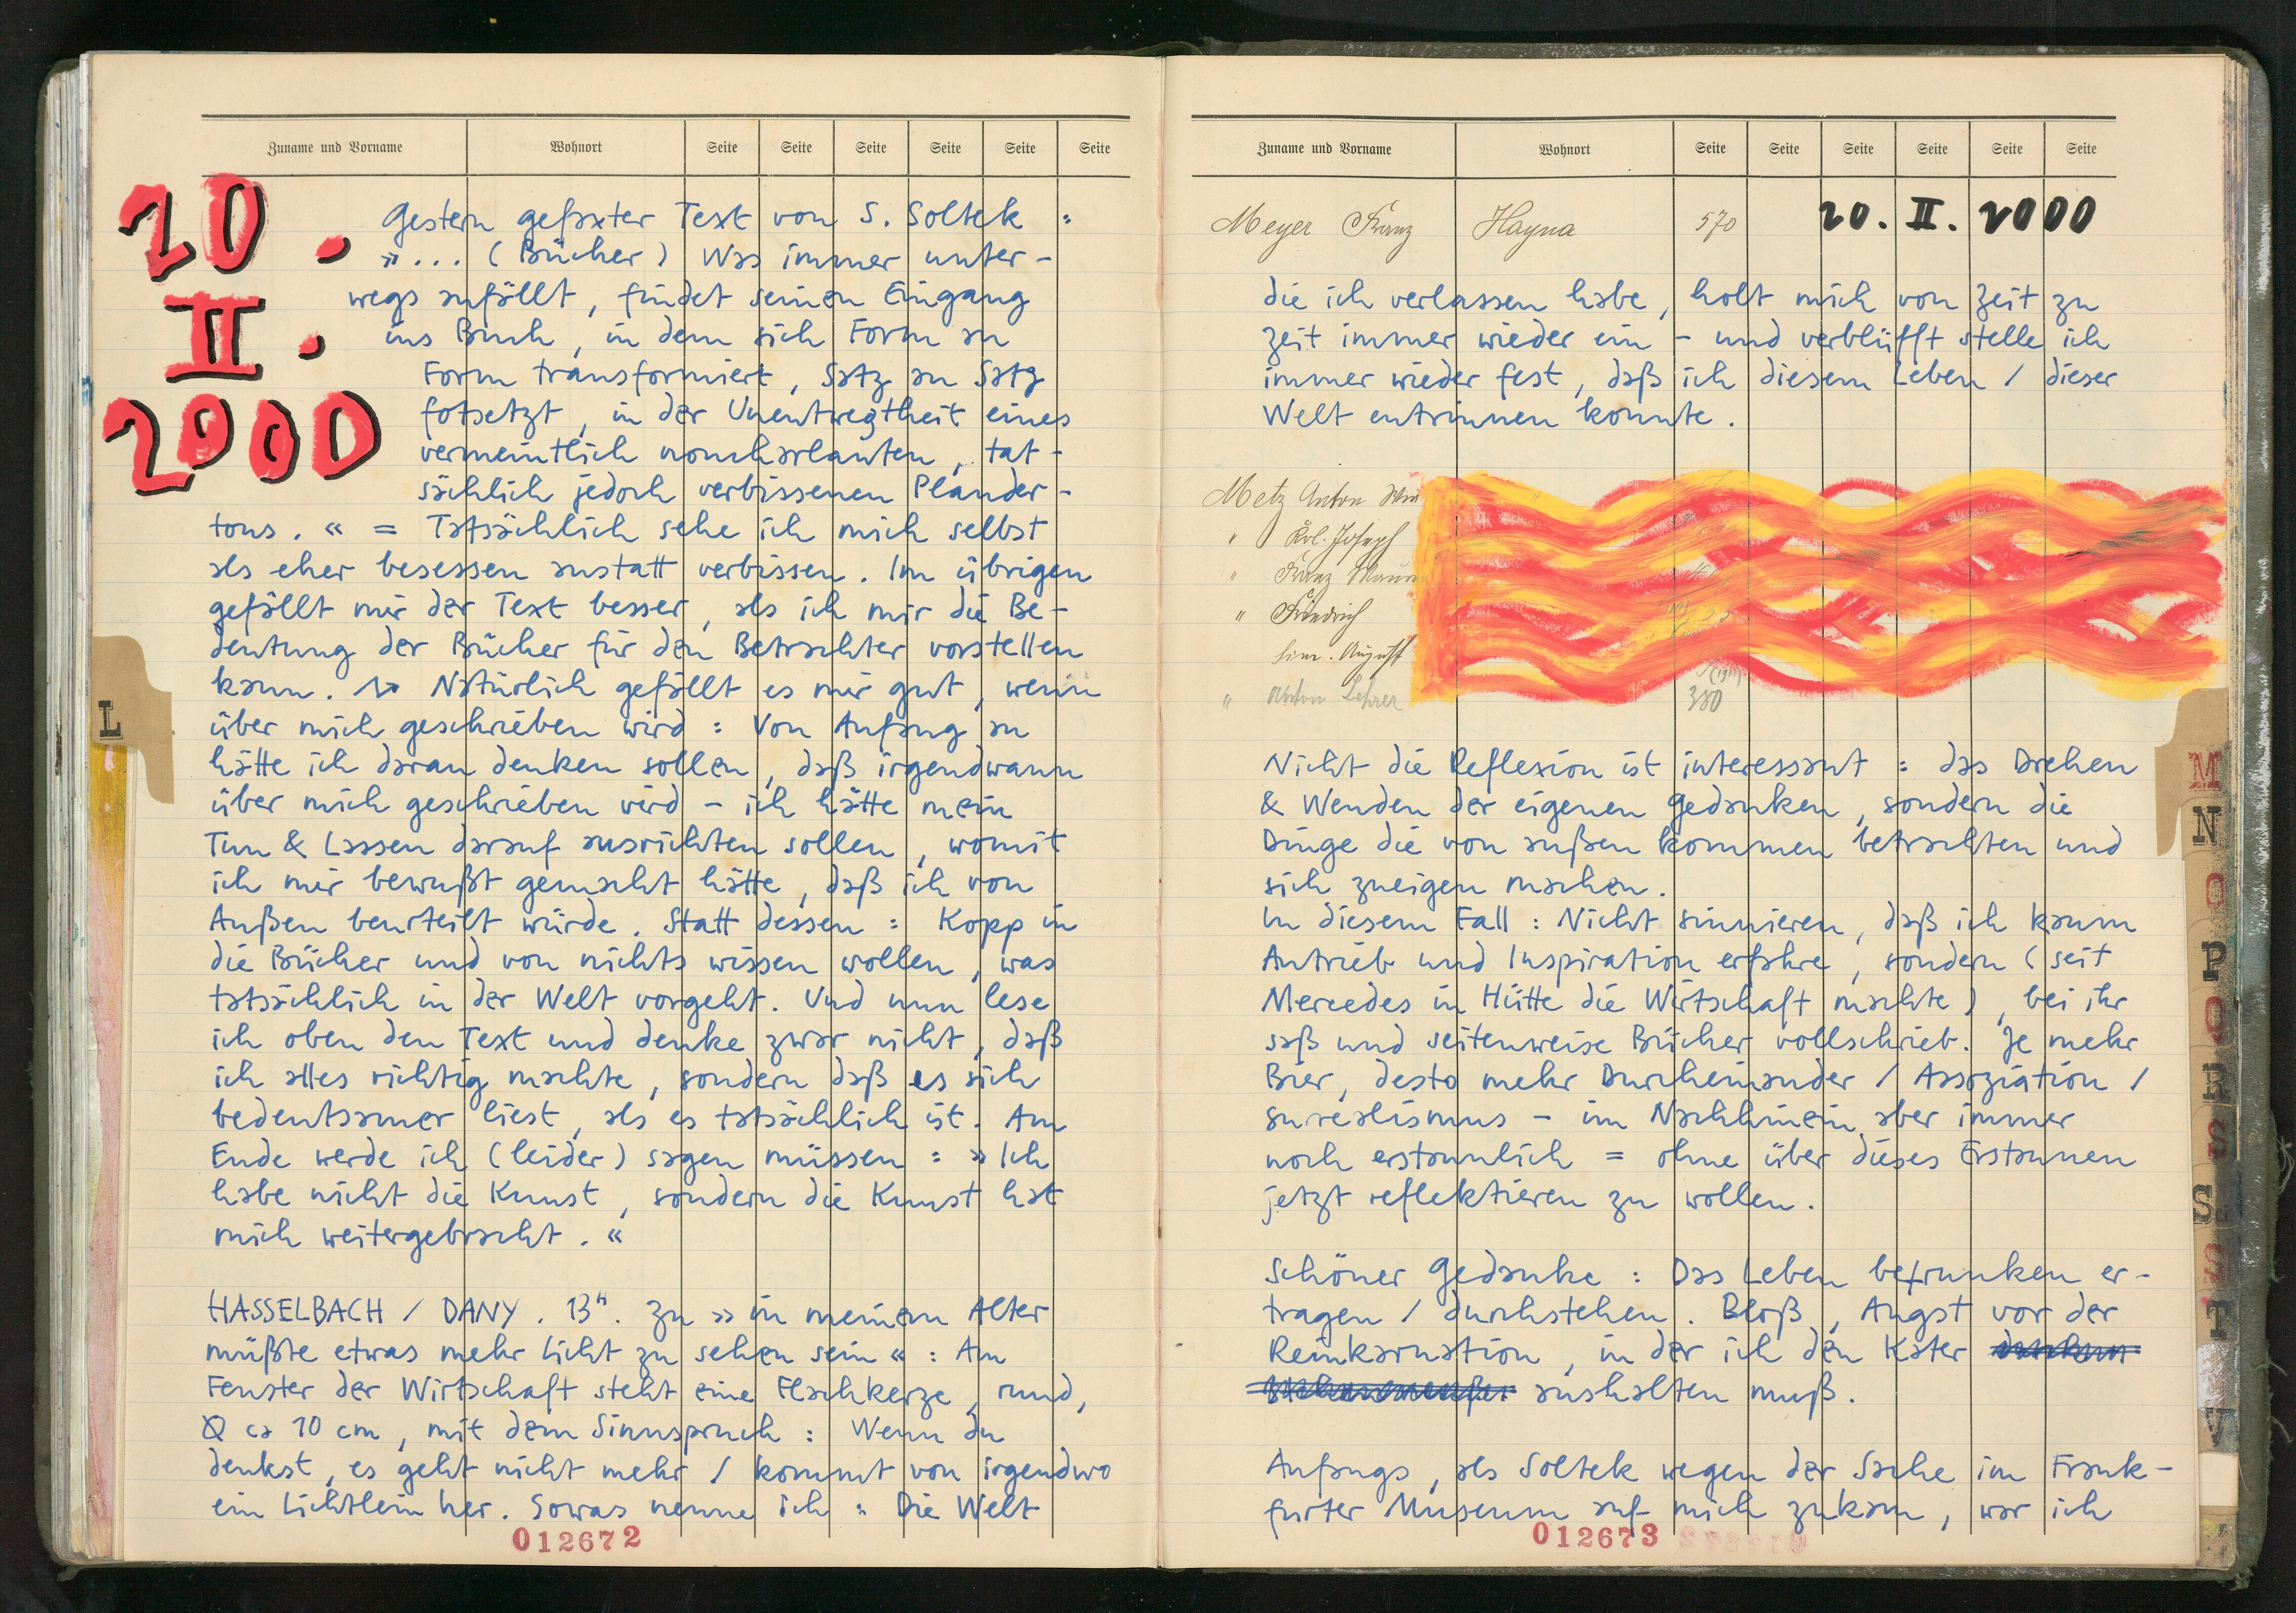 Zuname und Vorname Wohnort Seite Seite Seite Seite Seite Seite
20.
II.
2000
Gestern gefaxter Text von S. Soltek :
»... (Bücher) Was immer unter-
wegs anfällt, findet seinen Eingang
ins Buch, in dem sich Form an
Form transformiert, Satz an Satz
fotsetzt, in der Unentwegtheit eines
vermeintlich noncharlanten, tat-
sächlich jedoch verbissenen Plauder-
tons. « = Tatsächlich sehe ich mich selbst
als eher besessen anstatt verbissen. Im übrigen
gefällt mir der Text besser, als ich mir die Be-
deutung der Bücher für den Betrachter vorstellen
kann. Natürlich gefällt es mir gut, wenn
über mich geschrieben wird : Von Anfang an
hätte ich daran denken sollen, daß irgendwann
über mich geschrieben wird – ich hätte mein
Tun & Lassen darauf ausrichten sollen, womit
ich mir bewußt gemacht hätte, daß ich von
Außen beurteilt würde. Statt dessen : Kopp in
die Bücher und von nichts wissen wollen, was
tatsächlich in der Welt vorgeht. Und nun lese
ich oben den Text und denke zwar nicht, daß
ich alles richtig machte, sondern daß es sich
bedeutsamer liest, als es tatsächlich ist. Am
Ende werde ich (leider) sagen müssen : » Ich
habe nicht die Kunst, sondern die Kunst hat
mich weitergebracht. «
HASSELBACH / DANY. 13ʰ. Zu » in meinem Alter
müßte etwas mehr Licht zu sehen sein « : Am
Fenster der Wirtschaft steht eine Flachkerze, rund,
Ø ca 10 cm, mit dem Sinnspruch : Wenn du
denkst, es geht nicht mehr / kommt von irgendwo
ein Lichtlein her. Sowas nenne ich : Die Welt
012672
L
Zuname und Vorname Wohnort Seite Seite Seite Seite Seite Seite
Meyer Franz Hayna 570 20. II. 2000
die ich verlassen habe, holt mich von Zeit zu
Zeit immer wieder ein – und verblüfft stelle ich
immer wieder fest, daß ich diesem Leben / dieser
Welt entrinnen konnte.
Metz Anton
" Joseph
" Franz
" Friedrich
August
" Anton Lehrer 380
Nicht die Reflexion ist interessant : das Drehen
& Wenden der eigenen Gedanken, sondern die
Dinge die von außen kommen betrachten und
sich zueigen machen.
In diesem Fall : Nicht sinnieren, daß ich kaum
Antrieb und Inspiration erfahre, sondern (seit
Mercedes in Hütte die Wirtschaft machte), bei ihr
saß und seitenweise Bücher vollschrieb. Je mehr
Bier, desto mehr Durcheinander / Assoziation /
Surealismus – im Nachhinein aber immer
noch erstaunlich = ohne über dieses Erstaunen
jetzt reflektieren zu wollen.
Schöner Gedanke : Das Leben betrunken er-
tragen / durchstehen. Bloß, Angst vor der
Reinkarnation, in der ich den Kater
aushalten muß.
Anfangs, als Soltek wegen der Sache im Frank-
furter Museum auf mich zukam, war ich
012673
M
N
O
P
Q
R
S
S
T
V